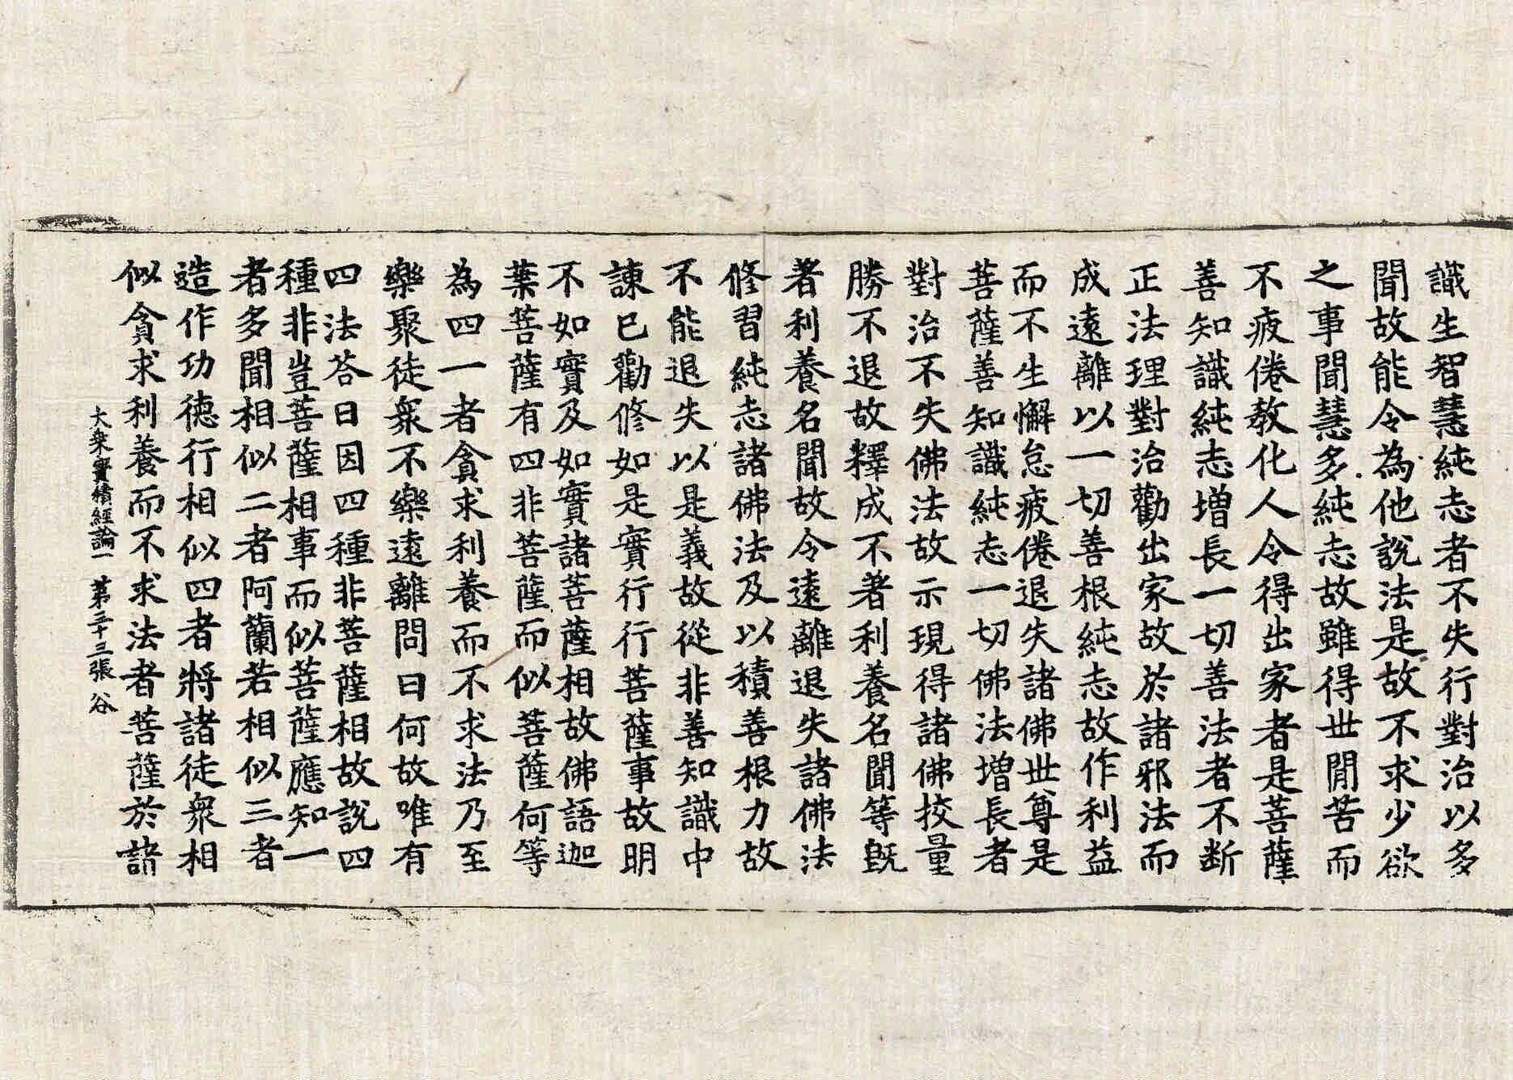 識生智慧純志者不失行對治以多
聞故能令為他說法是故不求少欲
之事聞慧多純志故雖得世間苦而
不疲倦教化人令得出家者是菩薩
善知識純志增長一切善法者不断
正法理對治勸出家故於諸邪法而
成遠離以一切善根純志故作利益
而不生懈怠疲倦退失諸佛世尊是
菩薩善知識純志一切佛法增長者
對治不失佛法故示現得諸佛挍量
勝不退故釋成不著利養名聞等既
著利養名聞故令遠離退失諸佛法
修習純志諸佛法及以積善根力故
不能退失以是義故從非善知識中
諫已勸修如是實行行菩薩事故明
不如實及如實諸菩薩相故佛語迦
葉菩薩有四非菩薩而似菩薩何等
為四一者貪求利養而不求法乃至
樂聚徒衆不樂遠離問曰何故唯有
四法答曰因四種非菩薩相故說四
種非豈菩薩相事而似菩薩應知一
者多聞相似二者阿蘭若相似三者
造作功德行相似四者將諸徒衆相
似貪求利養而不求法者菩薩於諸
大乘寶積經論一 第三十三張 谷